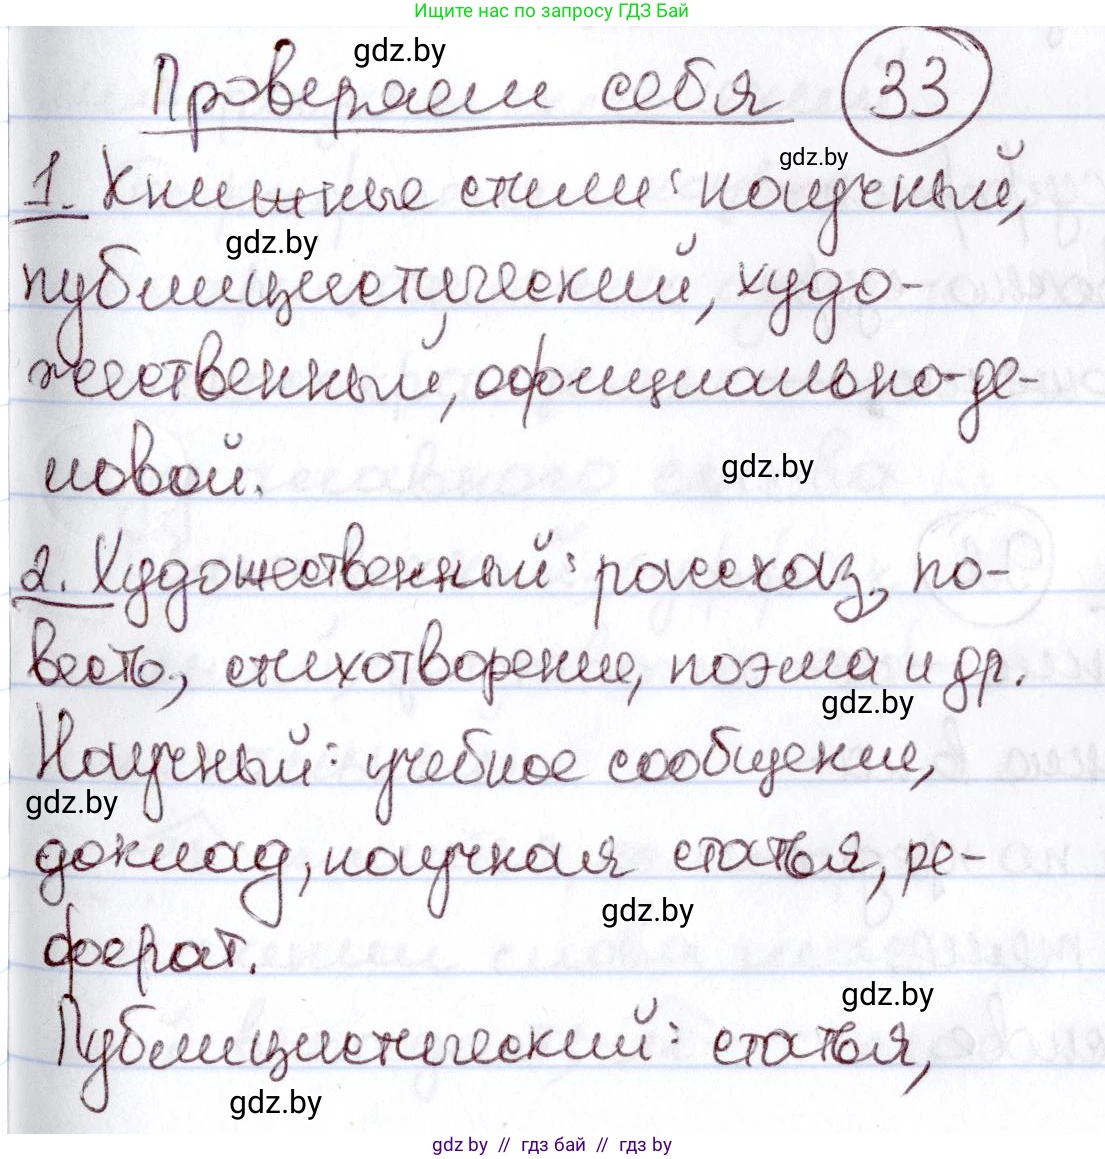 Ищите нас по запросу ГДЗ Бай
gdz.by
Проверяем себя 33
gdz.by
1. Книжные стили: научный,
gdz.by
публицистический, худо-
жественный, официально-де-
ловой.
gdz.by
2. Художественный: рассказ, по-
весть, стихотворение, поэма и др.
gdz.by
Научный: учебное сообщение,
gdz.by
доклад, научная статья, ре-
gdz.by
ферат.
gdz.by
Публицистический: статья,
gdz.by
gdz.by // гдз бай // гдз by